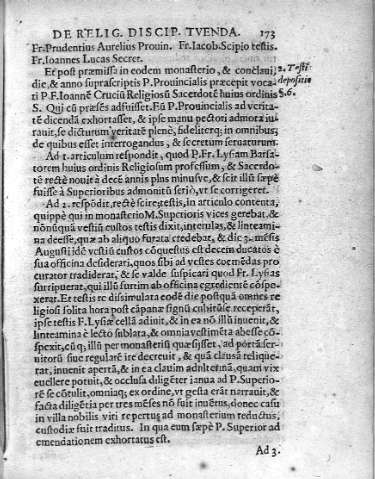 DE RELIG. DISCIP. TVENDA. 173
Fr.Prudentius Aurelius Prouin. Fr.Iacob.Scipio testis.
Fr.Ioannes Lucas Secret.
Et post præmissa in eodem monasterio, & conclaui,
die,& anno suprascriptis P.Prouincialis præcepit voca-
ri P.F.Ioannē Cruciū Religiosū Sacerdotē huius ordinis
S. Qui cū præsēs adfuisset.Eū P.Prouincialis ad verita-
tē dicendā exhortasset, & ipse manu pectori admota iu-
rauit, se dicturum veritatē plenè, fideliterq; in omnibus,
de quibus esset interrogandus, & secretum seruaturum.
Ad 1. articulum respondit, quod P.Fr. Lysiam Barsa-
torem huius ordinis Religiosum professum, & Sacerdo-
tē rectè nouit à decē annis plus minusve, & scit illū sæpè
fuisse à Superioribus admonitū seriò, vt se corrigeret.
Ad 2. respōdit, rectè scire, testis, in articulo contenta,
quippè qui in monasterio M.Superioris vices gerebat, &
nōnsquā vestiū custos testis dixit, interulas, & linteamina
deesse, quæ ab aliquo furata credebat, & die 3. mēsis
Augusti idē vestiū custos cōquestus est decem ducatos è
sua officina desiderari, quos sibi ad vestes coemēdas pro
curator tradiderat, & se valde suspicari quod Fr. Lysias
surripuerat, qui illū furtim ab officina egredientē cōspe-
xerat. Et testis re dissimulata eodē die postquā omnes re
ligiosi solita hora post cœpanæ signū cubitū se receperāt,
ipse testis F.Lysiæ cellā adiuit, & in ea nō illū inuenit, &
linteamina è lecto sublata, & omnia vestimēta abesse cō-
spexit, cūq; illū per monasteriū quæsisset, ad portā ser-
nitorū siue regularē ire decreuit, & quā clausā relique-
rat, inuenit apertā, & in ea clauim adulterinā, quam vix
euellere potuit, & occlusa diligēter ianua ad P.Superio-
rē se cōtulit, omniaq; ex ordine, vt gesta erāt narrauit, &
facta diligētia per tres mēses nō fuit inuētus, donec casu
in villa nobilis viri repertus ad monasterium reductus,
custodiæ fuit traditus. In qua eum sæpè P. Superior ad
emendationem exhortatus est.
Ad 3.
2. Testis
depositio
§.6.